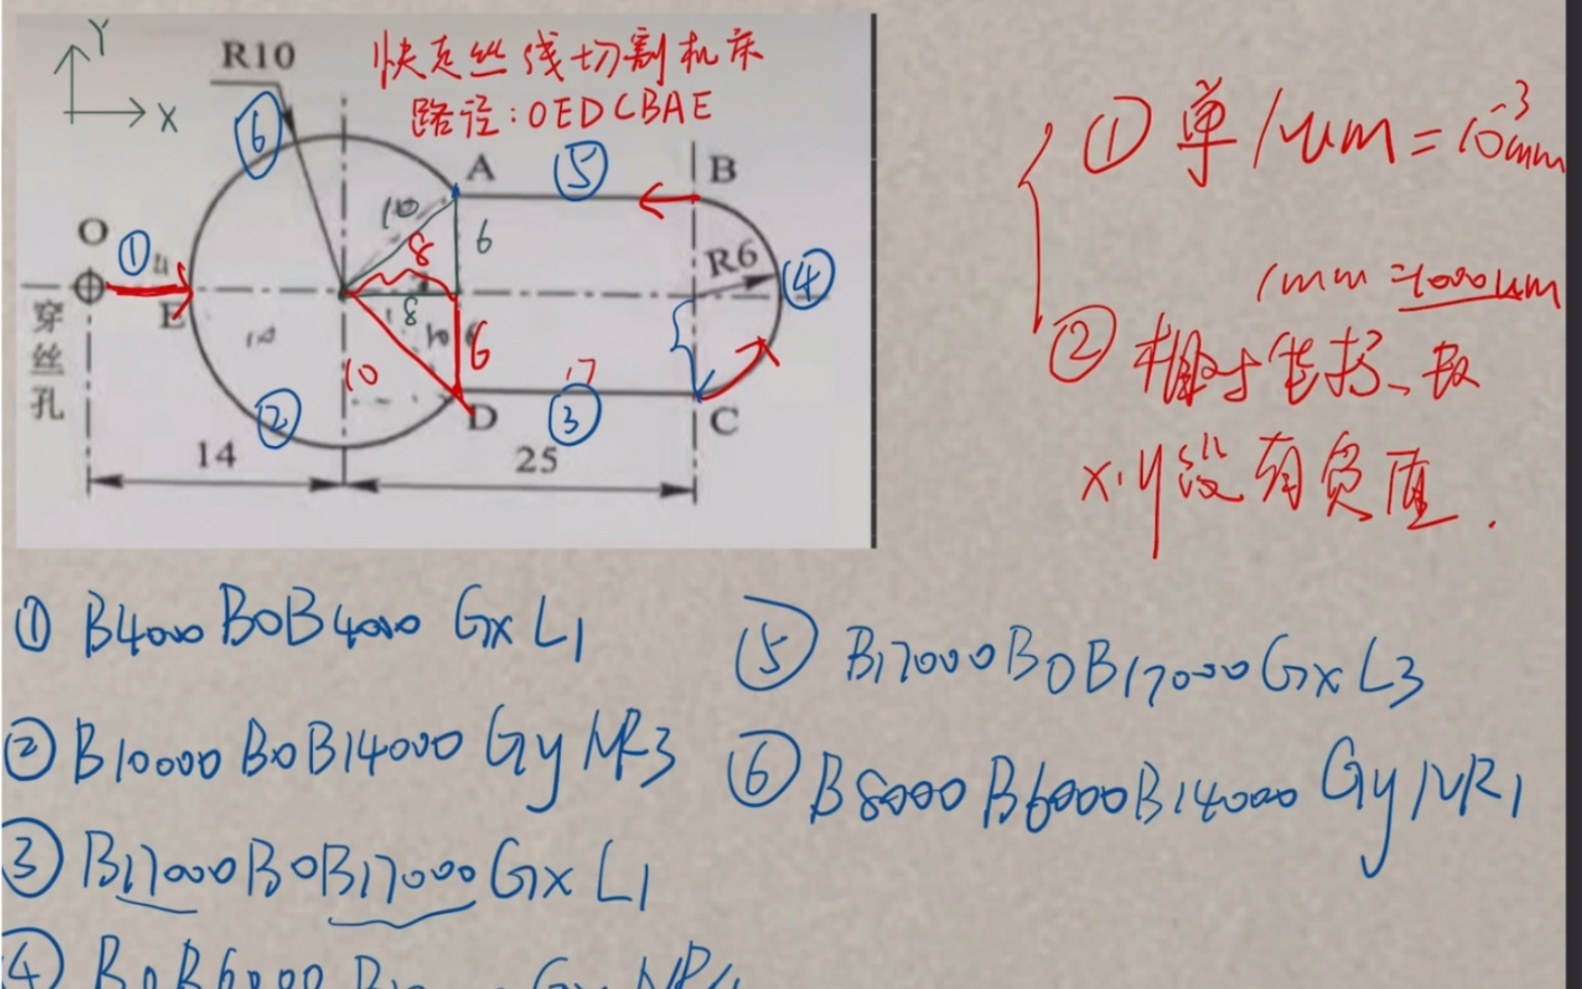 Y
X
R10
快走丝线切割机床
路径:OEDCBAE
⑥
A
⑤
B
O
①
4
10
8
6
R6
④
E
8
穿丝孔
10
10
6
10
17
②
D
③
C
14
25
① 单1μm=10⁻³mm
1mm=1000μm
② 相对坐标、取
x.y没有负值.
① B4000B0B4000 GxL1
② B10000B0B14000 GyNR3
③ B17000B0B17000GxL1
④ B0B6000B
⑤ B17000B0B17000GxL3
⑥ B8000B6000B14000 GyNR1